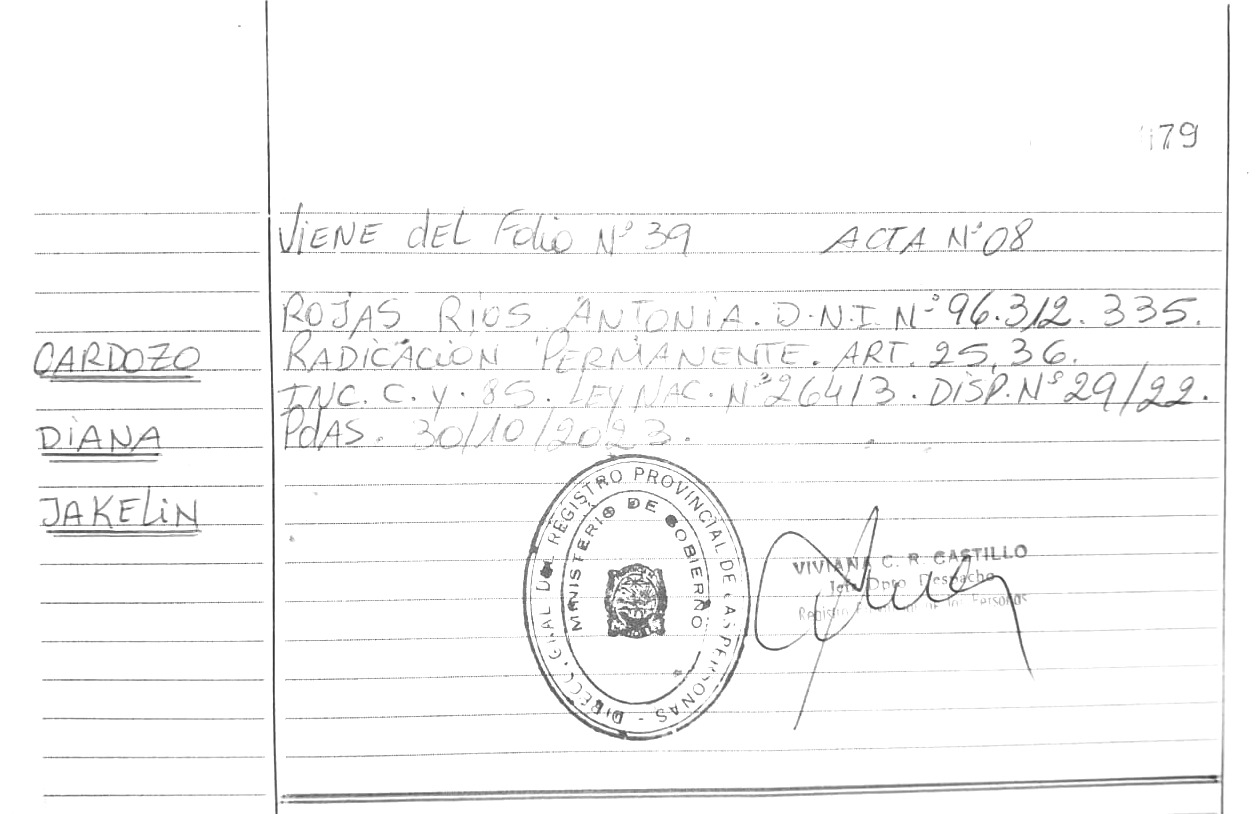 179
VIENE del Folio N° 39 ACTA N° 08
ROJAS RIOS ANTONIA. D.N.I. N° 96.312.335.
CARDOZO
RADICACION PERMANENTE. ART. 25, 36.
INC. C. y. 85. LEY NAC. N° 26413. DISP. N° 29/22.
DIANA
PdAS. 30/10/2023.
JAKELIN
DIRECC. GRAL DEL REGISTRO PROVINCIAL DE LAS PERSONAS -
MINISTERIO DE GOBIERNO
VIVIANA C. R. CASTILLO
Jefe Dpto Despacho
Registro de las Personas